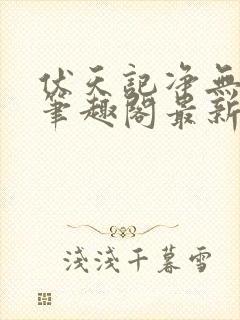 伏天記净無
筆趣閣最新
淺淺千暮雪